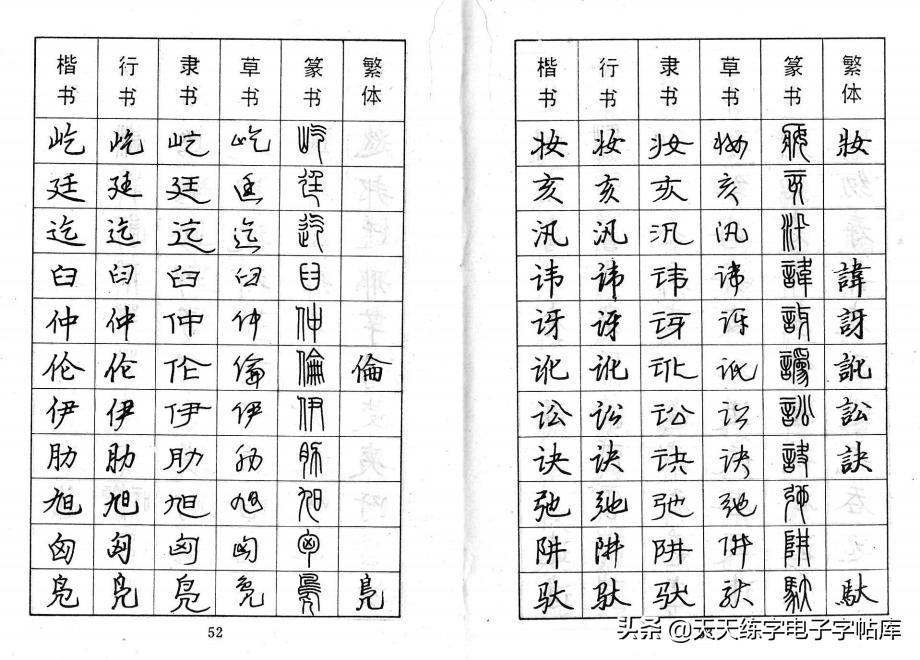 楷书 行书 隶书 草书 篆书 繁体
屹 屹 屹 屹 屹
廷 廷 廷 廷 廷
迄 迄 迄 迄 迄
臼 臼 臼 臼 臼
仲 仲 仲 仲 仲
伦 伦 伦 倫 倫 倫
伊 伊 伊 伊 伊
肋 肋 肋 肋 肋
旭 旭 旭 旭 旭
匈 匈 匈 匈 匈
凫 凫 凫 凫 凫 鳧
52
楷书 行书 隶书 草书 篆书 繁体
妆 妆 妆 妆 妝 妝
亥 亥 亥 亥 亥
汛 汛 汛 汛 汛
讳 讳 讳 讳 諱 諱
讶 讶 讶 讶 訝 訝
讹 讹 讹 讹 譌 訛
讼 讼 讼 讼 訟 訟
诀 诀 诀 诀 訣 訣
弛 弛 弛 弛 弛
阱 阱 阱 阱 阱
驮 驮 驮 驮 馱 馱
头条 @天天练字电子字帖库